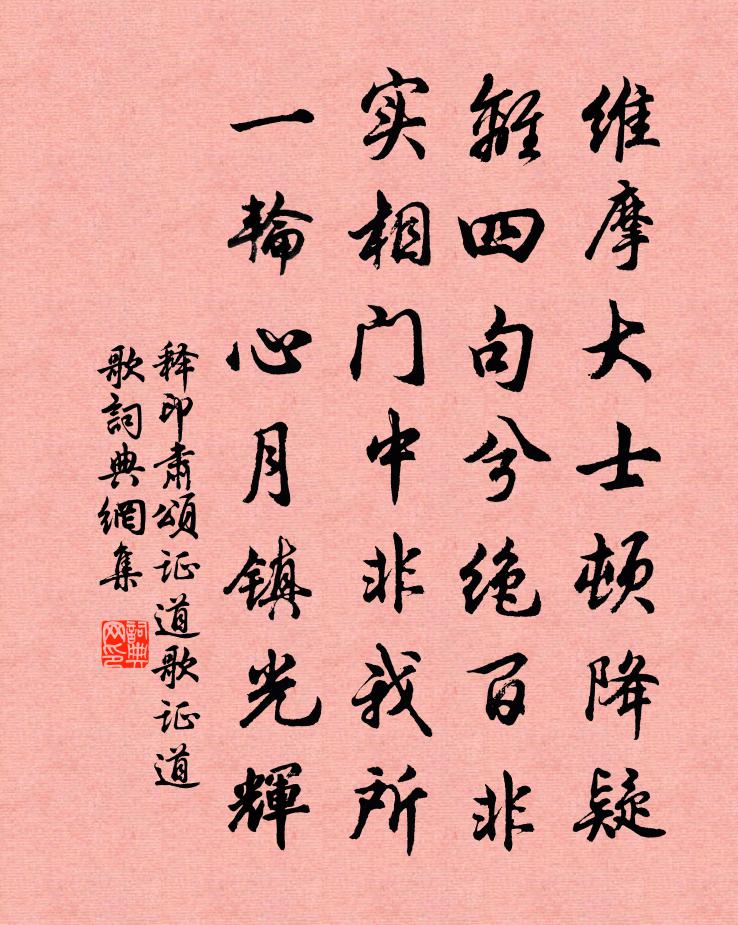 维摩大士顿降疑
離四句兮绝百非
实相门中非我所
一輪心月镇光輝
释印肃颂证道歌证道
歌詞典網集
詞典
网印